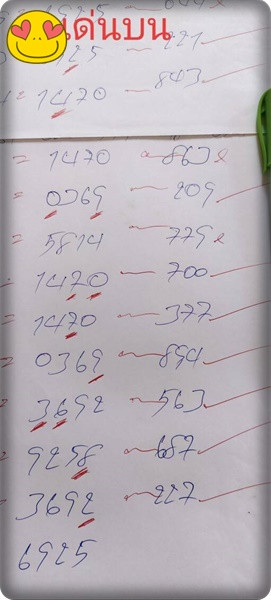 เด่นบน
1925
25 — 221
= 1470 — 843
= 1470 — 863x
= 0369 — 209
= 5814 — 779x
1470 — 700
= 1470 — 377
= 0369 — 894
3692 — 563
9258 — 687
3692 — 227
6925